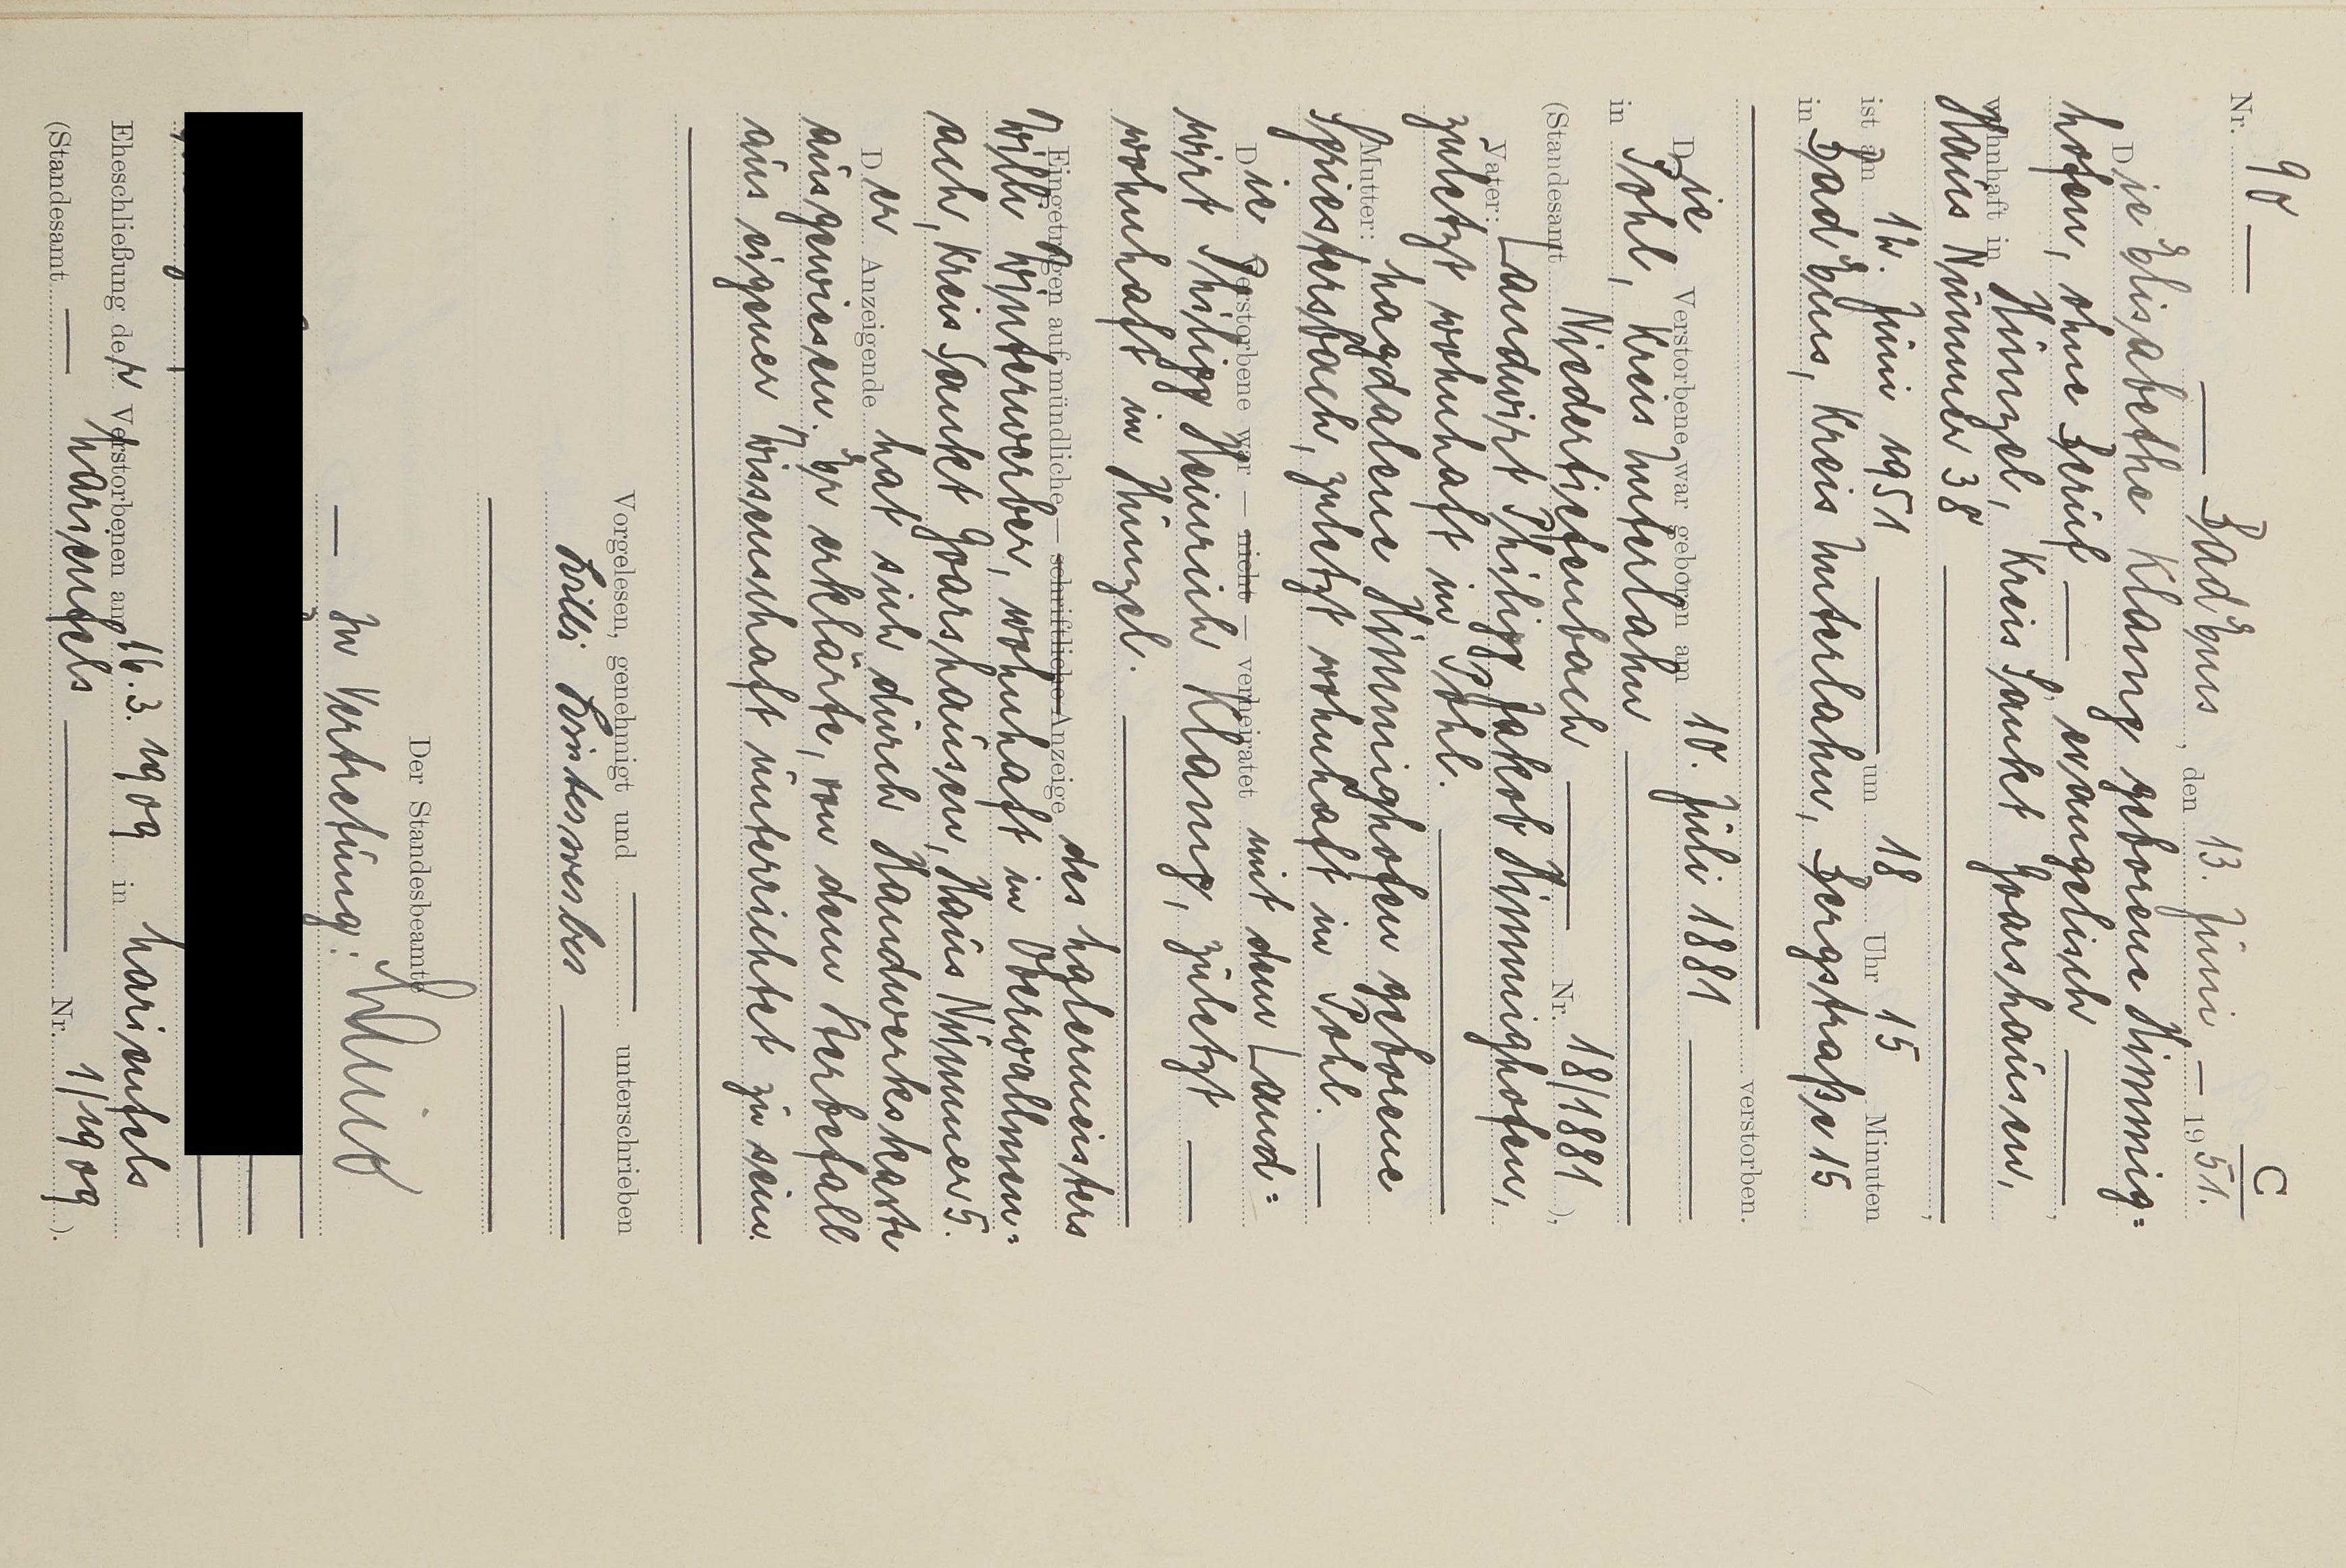 C
Nr. 90 —
— Bad Ems, den 13. Juni — 1951.
Die Elisabethe Klamp geborene Himmig=
hofen, ohne Beruf — , evangelisch — ,
wohnhaft in Hünzel, Kreis Sankt Goarshausen,
Haus Nummer 38 — ,
ist am 12. Juni 1951 — um 18 Uhr 15 Minuten
in Bad Ems, Kreis Unterlahn, Bergstraße 15
— verstorben.
Die Verstorbene war geboren am 10. Juli 1881 —
in Pohl, Kreis Unterlahn —
(Standesamt Niedertiefenbach — Nr. 18/1881 ),
Vater: Landwirt Philipp Jakob Himmighofen,
zuletzt wohnhaft in Pohl. —
Mutter: Magdalene Himmighofen geborene
Spriestersbach, zuletzt wohnhaft in Pohl. —
Die Verstorbene war — nicht — verheiratet mit dem Land=
wirt Philipp Heinrich Klamp, zuletzt —
wohnhaft in Hünzel. —
Eingetragen auf mündliche — schriftliche Anzeige des Malermeisters
Willi Winterwerber, wohnhaft in Oberwallmen=
ach, Kreis Sankt Goarshausen, Haus Nummer 5.
Der Anzeigende hat sich durch Handwerkskarte
ausgewiesen. Er erklärte, von dem Sterbefall
aus eigener Wissenschaft unterrichtet zu sein.
Vorgelesen, genehmigt und — unterschrieben
Willi Winterwerber —
Der Standesbeamte
— In Vertretung:
Eheschließung der Verstorbenen am 16.3.1909 in Marienfels
(Standesamt — Marienfels — Nr. 1/1909 ).